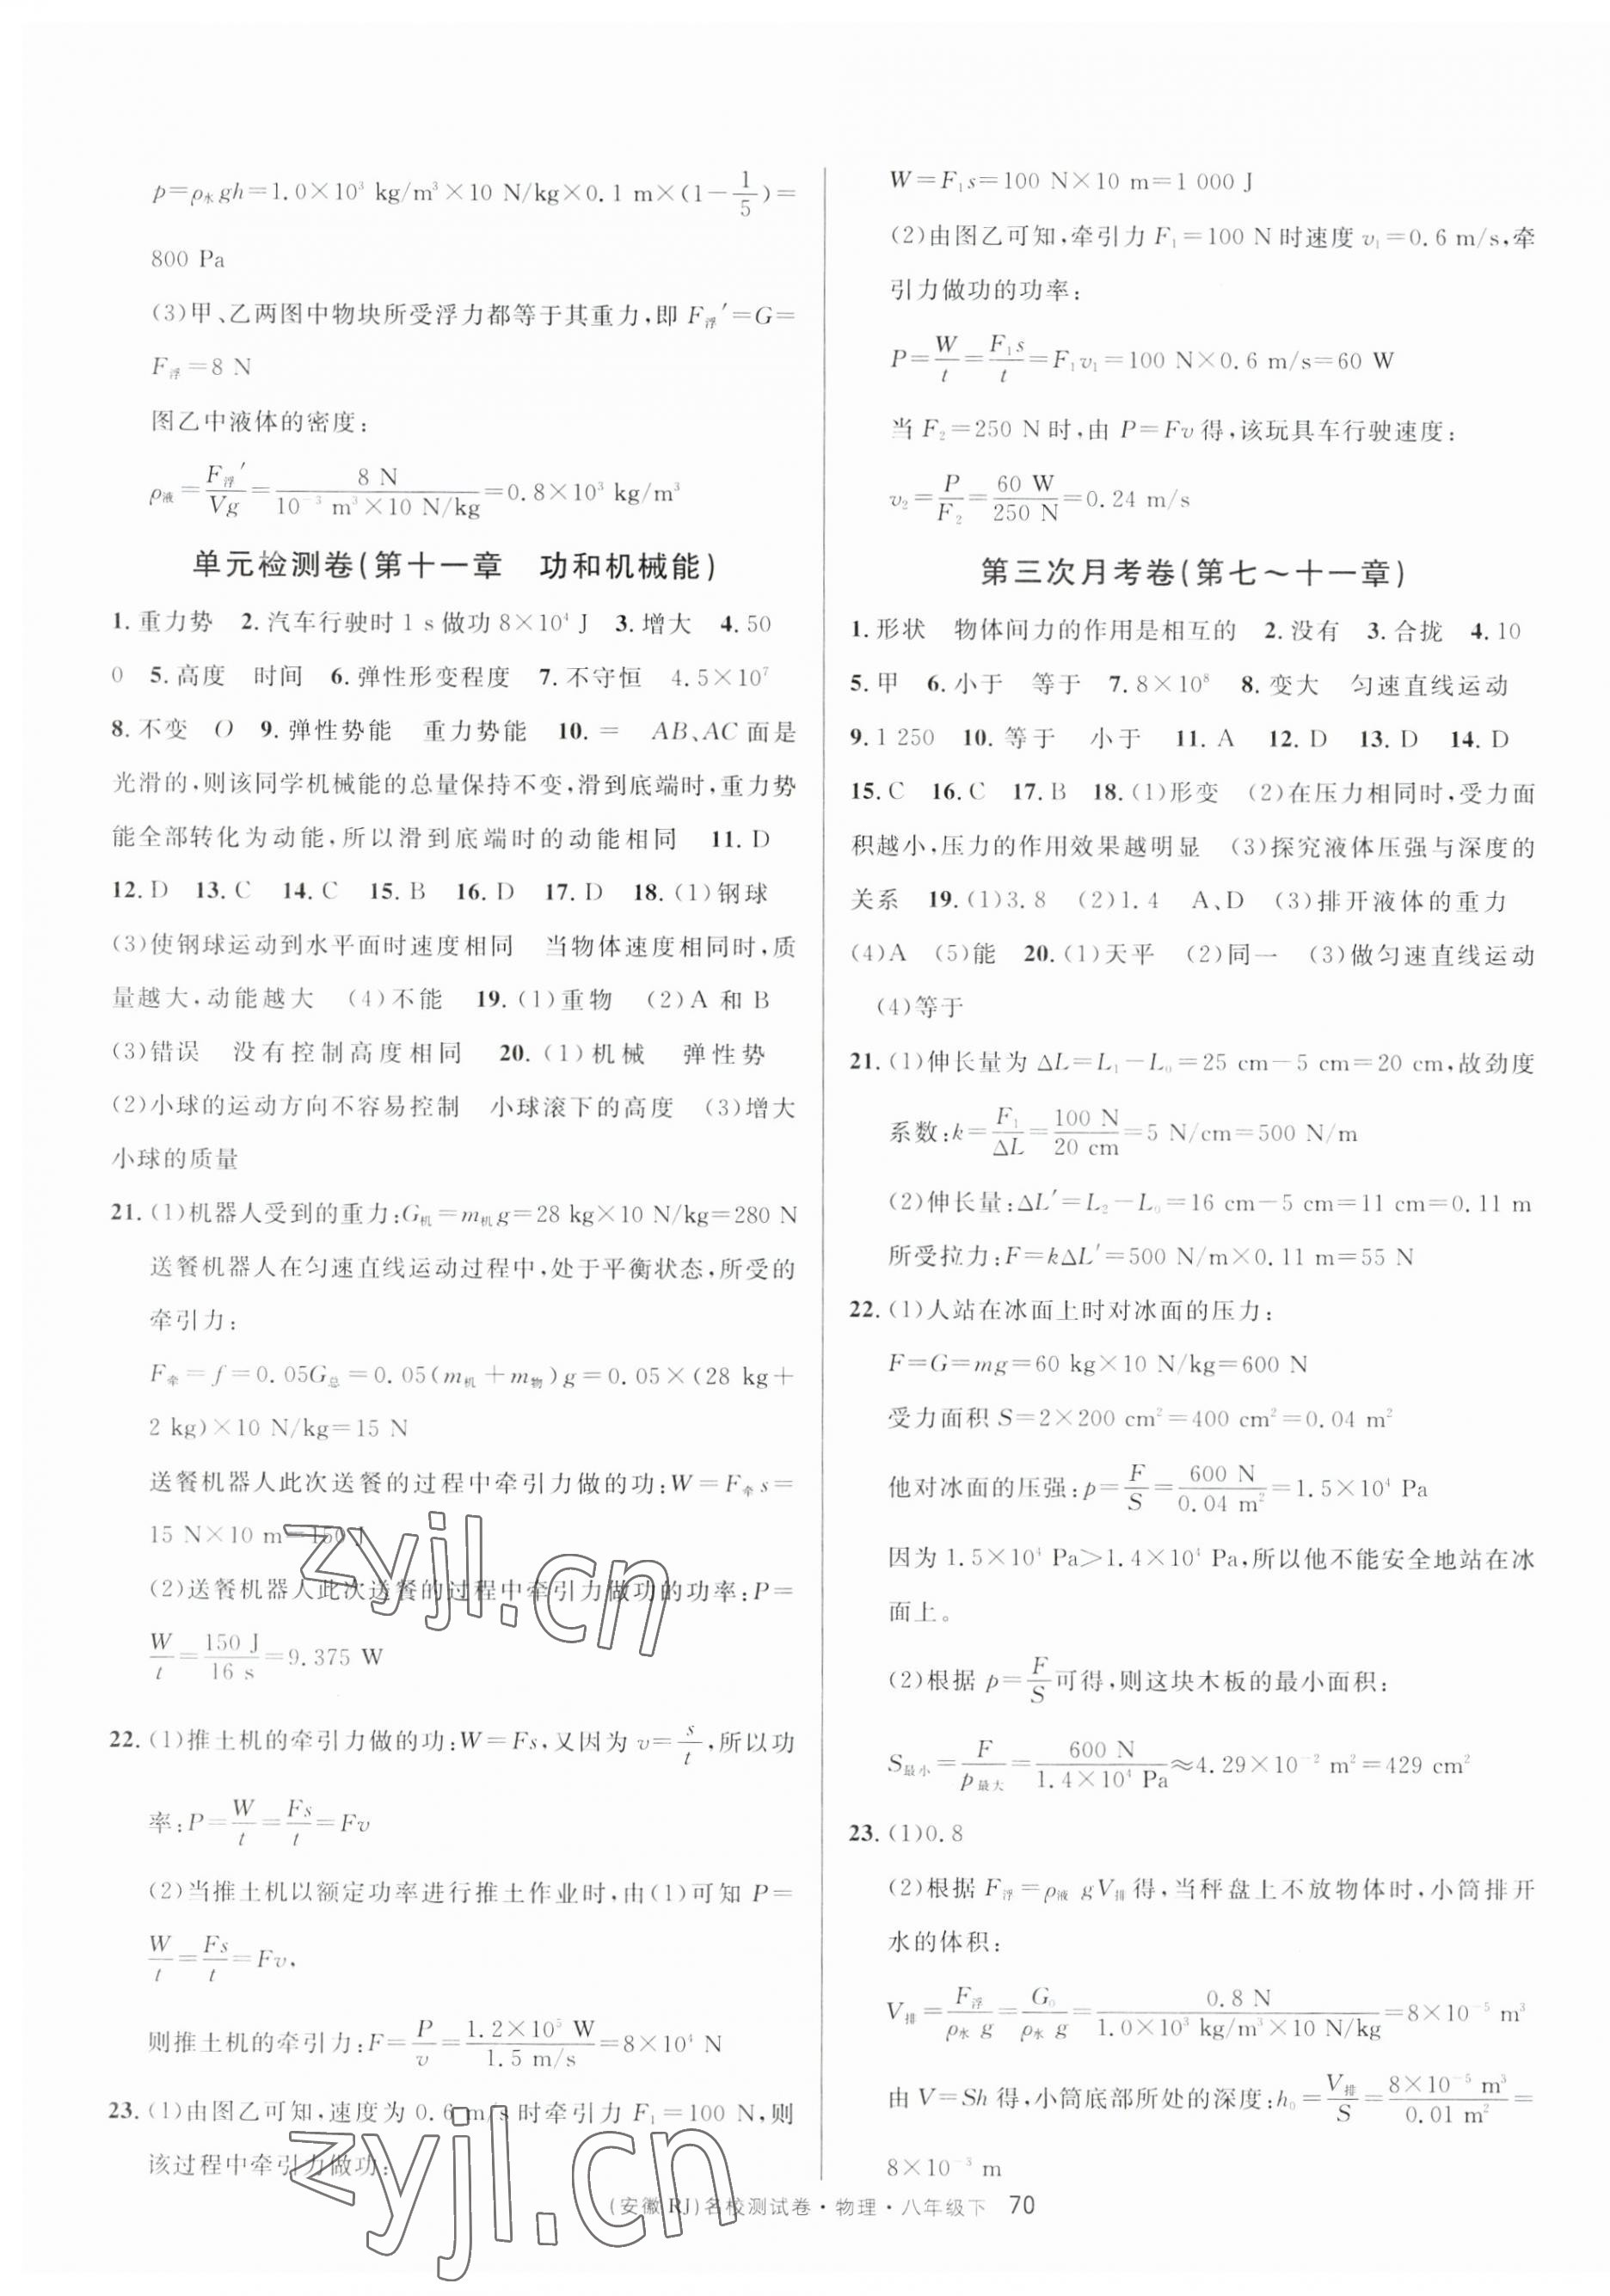 p=ρ水gh=1.0×10³ kg/m³×10 N/kg×0.1 m×(1-1/5)=
800 Pa
(3)甲、乙两图中物块所受浮力都等于其重力,即 F浮′=G=
F浮=8 N
图乙中液体的密度:
ρ液=F浮′/Vg=8 N/(10⁻³ m³×10 N/kg)=0.8×10³ kg/m³
单元检测卷(第十一章 功和机械能)
1.重力势 2.汽车行驶时 1 s 做功 8×10⁴ J 3.增大 4.50
0 5.高度 时间 6.弹性形变程度 7.不守恒 4.5×10⁷
8.不变 O 9.弹性势能 重力势能 10.= AB、AC 面是
光滑的,则该同学机械能的总量保持不变,滑到底端时,重力势
能全部转化为动能,所以滑到底端时的动能相同 11.D
12.D 13.C 14.C 15.B 16.D 17.D 18.(1)钢球
(3)使钢球运动到水平面时速度相同 当物体速度相同时,质
量越大,动能越大 (4)不能 19.(1)重物 (2)A 和 B
(3)错误 没有控制高度相同 20.(1)机械 弹性势
(2)小球的运动方向不容易控制 小球滚下的高度 (3)增大
小球的质量
21.(1)机器人受到的重力:G机=m机g=28 kg×10 N/kg=280 N
送餐机器人在匀速直线运动过程中,处于平衡状态,所受的
牵引力:
F牵=f=0.05G总=0.05(m机+m物)g=0.05×(28 kg+
2 kg)×10 N/kg=15 N
送餐机器人此次送餐的过程中牵引力做的功:W=F牵s=
15 N×10 m=150 J
(2)送餐机器人此次送餐的过程中牵引力做功的功率:P=
W/t=150 J/16 s=9.375 W
22.(1)推土机的牵引力做的功:W=Fs,又因为 v=s/t,所以功
率:P=W/t=Fs/t=Fv
(2)当推土机以额定功率进行推土作业时,由(1)可知 P=
W/t=Fs/t=Fv,
则推土机的牵引力:F=P/v=1.2×10⁵ W/1.5 m/s=8×10⁴ N
23.(1)由图乙可知,速度为 0.6 m/s 时牵引力 F₁=100 N,则
该过程中牵引力做功:
W=F₁s=100 N×10 m=1 000 J
(2)由图乙可知,牵引力 F₁=100 N 时速度 v₁=0.6 m/s,牵
引力做功的功率:
P=W/t=F₁s/t=F₁v₁=100 N×0.6 m/s=60 W
当 F₂=250 N 时,由 P=Fv 得,该玩具车行驶速度:
v₂=P/F₂=60 W/250 N=0.24 m/s
第三次月考卷(第七~十一章)
1.形状 物体间力的作用是相互的 2.没有 3.合拢 4.10
5.甲 6.小于 等于 7.8×10⁸ 8.变大 匀速直线运动
9.1 250 10.等于 小于 11.A 12.D 13.D 14.D
15.C 16.C 17.B 18.(1)形变 (2)在压力相同时,受力面
积越小,压力的作用效果越明显 (3)探究液体压强与深度的
关系 19.(1)3.8 (2)1.4 A、D (3)排开液体的重力
(4)A (5)能 20.(1)天平 (2)同一 (3)做匀速直线运动
(4)等于
21.(1)伸长量为 ΔL=L₁-L₀=25 cm-5 cm=20 cm,故劲度
系数:k=F₁/ΔL=100 N/20 cm=5 N/cm=500 N/m
(2)伸长量:ΔL′=L₂-L₀=16 cm-5 cm=11 cm=0.11 m
所受拉力:F=kΔL′=500 N/m×0.11 m=55 N
22.(1)人站在冰面上时对冰面的压力:
F=G=mg=60 kg×10 N/kg=600 N
受力面积 S=2×200 cm²=400 cm²=0.04 m²
他对冰面的压强:p=F/S=600 N/0.04 m²=1.5×10⁴ Pa
因为 1.5×10⁴ Pa>1.4×10⁴ Pa,所以他不能安全地站在冰
面上。
(2)根据 p=F/S可得,则这块木板的最小面积:
S最小=F/p最大=600 N/(1.4×10⁴ Pa)≈4.29×10⁻² m²=429 cm²
23.(1)0.8
(2)根据 F浮=ρ液gV排得,当秤盘上不放物体时,小筒排开
水的体积:
V排=F浮/ρ水g=G₀/ρ水g=0.8 N/(1.0×10³ kg/m³×10 N/kg)=8×10⁻⁵ m³
由 V=Sh 得,小筒底部所处的深度:h₀=V排/S=8×10⁻⁵ m³/0.01 m²=
8×10⁻³ m
(安徽 RJ)名校测试卷·物理·八年级下 70
zyjl.cn
zyjl.cn